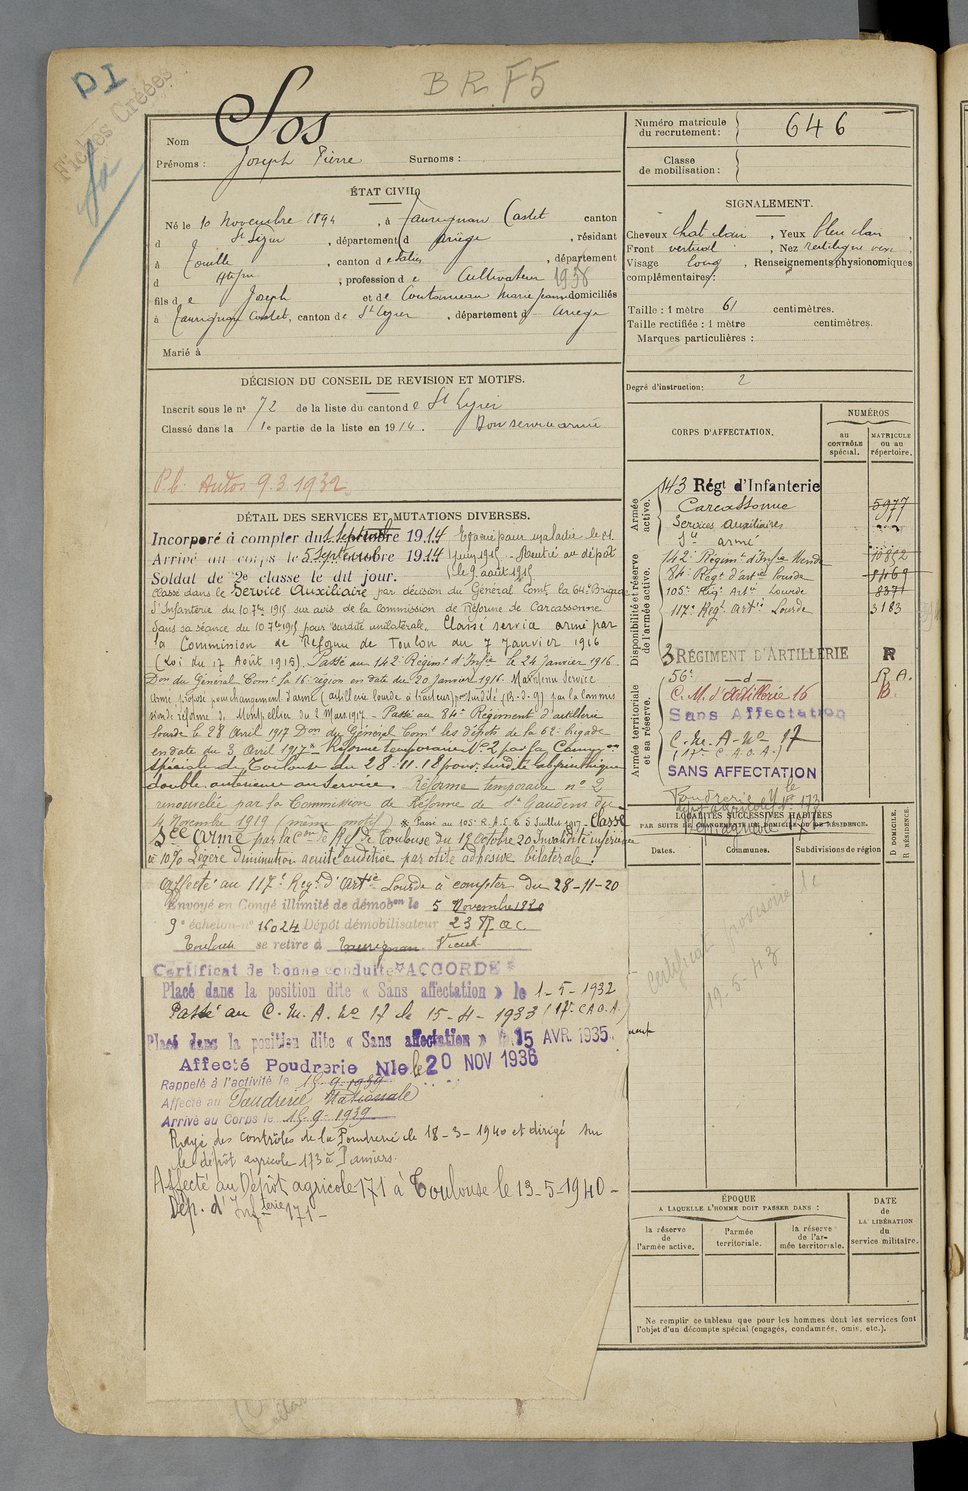 PI
Fiches Créées
BR F5
Nom Sos
Prénoms : Joseph Pierre Surnoms :
Numéro matricule du recrutement : 646
Classe de mobilisation :
ÉTAT CIVIL
Né le 10 Novembre 1894, à Taurignan Castet canton
d St Lizier, département d Ariège, résidant
à, canton d, département
d, profession de Cultivateur 1938
fils de Joseph et de Marie Jeanne domiciliés
à Taurignan Castet, canton de St Lizier, département d Ariège
Marié à
SIGNALEMENT.
Cheveux chat clair, Yeux bleu clair,
Front vertical, Nez rectiligne
Visage long, Renseignements physionomiques
complémentaires :
Taille : 1 mètre 61 centimètres.
Taille rectifiée : 1 mètre centimètres.
Marques particulières :
Degré d'instruction: 2
DÉCISION DU CONSEIL DE REVISION ET MOTIFS.
Inscrit sous le n° 72 de la liste du canton de St Lizier
Classé dans la 1e partie de la liste en 1914. Bon service armé
P.b. Autos 9.3.1932
DÉTAIL DES SERVICES ET MUTATIONS DIVERSES.
Incorporé à compter du Septembre 1914
Arrivé au corps le 5 Septembre 1914
Soldat de 2e classe le dit jour.
juin 1915 - Rentré au dépôt
le 9 août 1915
Classé dans le Service Auxiliaire par décision du Général Comt la 64e Brigade
d'Infanterie du 10 7bre 1915 sur avis de la Commission de Réforme de Carcassonne
dans sa séance du 10 7bre 1915 pour surdité unilatérale. Classé service armé par
la Commission de Réforme de Toulon du 7 Janvier 1916
(Loi du 17 Août 1915). Passé au 142e Régimt d'Infie le 24 janvier 1916.
Don du Général Comt la 16e région en date du 20 Janvier 1916. Maintenu Service
armé proposé pour changement d'arme (artillerie lourde à tracteurs) pr surdité (B.D.G) par la commis
sion de réforme de Montpellier du 2 Mars 1917 - Passé au 84e Régiment d'artillerie
lourde le 28 Avril 1917 Don du Général Comt les dépôts de la 62e brigade
en date du 3 Avril 1917 * Réformé temporaire No 2 par la Common
spéciale de Toulouse du 28-11-18 pour surdité labyrinthique
double antérieure au service. Réforme temporaire no 2
renouvelée par la Commission de Réforme de St Gaudens du
4 Novembre 1919 (même motif) * Passé au 105e R.A.L. le 5 Juillet 1917 - Classé
Sce Armé par la Con de Rf de Toulouse du 18 Octobre 20 Invalidité inférieure
à 10% Légère diminution acuité auditive par otite adhésive bilatérale
Affecté au 117e Regt d'Artie Lourde à compter du 28-11-20
Envoyé en Congé illimité de démobon le 5 Novembre 1920
9e échelon n° 16024 Dépôt démobilisateur 23 R.a.c.
Toulouse se retire à Taurignan Vieux
Certificat de bonne conduite "ACCORDÉ"
Placé dans la position dite « Sans affectation » le 1-5-1932
Passé au C.M.A. No 17 le 15-4-1933 (17e C.A.O.A.)
Placé dans la position dite « Sans affectation » 15 AVR. 1935
Affecté Poudrerie Nle le 20 NOV 1936
Rappelé à l'activité le 15-9-1939
Affecté au Poudrerie Nationale
Arrivé au Corps le 15-9-1939
Rayé des contrôles de la Poudrerie le 18-3-1940 et dirigé sur
le dépôt agricole 173 à Pamiers.
Affecté au Dépôt agricole 171 à Toulouse le 13-5-1940 -
Dép. d'Infterie 171 -
CORPS D'AFFECTATION.
NUMÉROS
au CONTRÔLE spécial.
MATRICULE ou au répertoire.
Armée active.
143 Régt d'Infanterie
Carcassonne 5977
Services auxiliaires
Sce armé
Disponibilité et réserve de l'armée active.
142e Régimt d'Infie 10852
84e Régt d'artie lourde 8469
105e Régt Artie Lourde 8371
117e Regt Artie Lourde 3183
Armée territoriale et sa réserve.
3 RÉGIMENT D'ARTILLERIE R
56e — d — R.A.
C.M. d'Artillerie 16 B
Sans Affectation
C.M.A. No 17
(17e C.A.O.A.)
SANS AFFECTATION
Poudrerie Nle
LOCALITÉS SUCCESSIVES HABITÉES
PAR SUITE DE CHANGEMENTS DE DOMICILE OU DE RÉSIDENCE.
Dates. Communes. Subdivisions de région
D DOMICILE.
R RÉSIDENCE.
Certificat provisoire le
19-5-43
ÉPOQUE
A LAQUELLE L'HOMME DOIT PASSER DANS :
la réserve de l'armée active.
l'armée territoriale.
la réserve de l'armée territoriale.
DATE de LA LIBÉRATION du service militaire.
Ne remplir ce tableau que pour les hommes dont les services font
l'objet d'un décompte spécial (engagés, condamnés, omis, etc.).